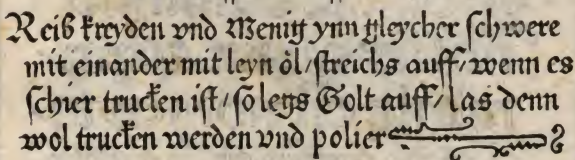 Reiß kreyden vnd Menig ynn gleycher schwere
mit einander mit leyn öl/streichs auff/wenn es
schier trucken ist/so legs Golt auff/las denn
wol trucken werden vnd polier